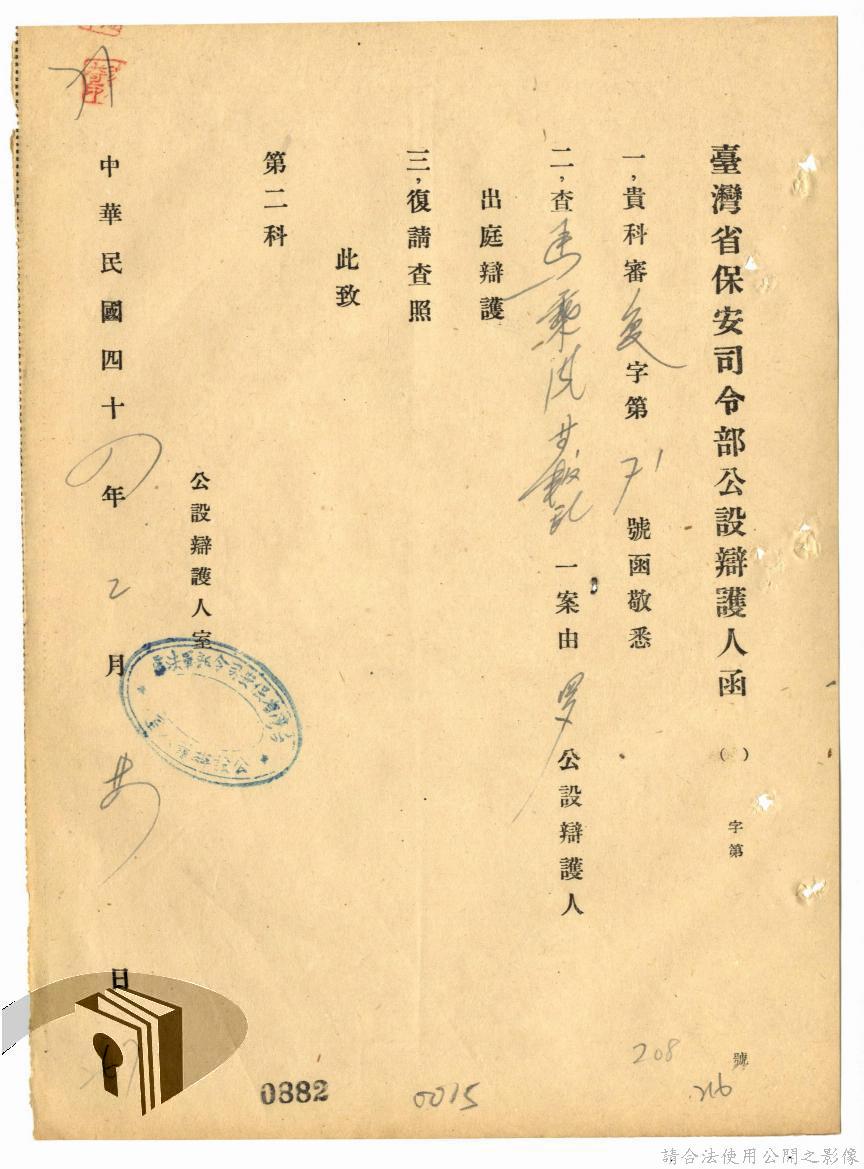 臺灣省保安司令部公設辯護人函 ( ) 字第 號
216
一，貴科審復字第71號函敬悉
二，查 一案由羅公設辯護人
出庭辯護
三，復請查照
此致
第二科
公設辯護人室
中華民國四十四年2月 日
208
0015
0382
請合法使用公開之影像